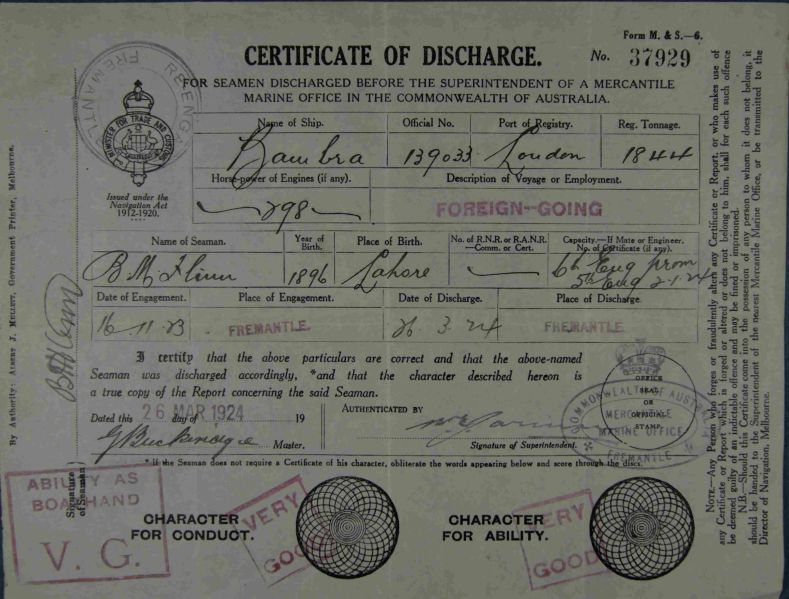 Form M. & S.—6.
CERTIFICATE OF DISCHARGE.
No. 37929
FOR SEAMEN DISCHARGED BEFORE THE SUPERINTENDENT OF A MERCANTILE
MARINE OFFICE IN THE COMMONWEALTH OF AUSTRALIA.
FREMANTLE
MINISTER FOR TRADE AND CUSTOMS
Issued under the
Navigation Act
1912-1920.
Name of Ship. Official No. Port of Registry. Reg. Tonnage.
Bambra 139033 London 1844
Horse-power of Engines (if any). Description of Voyage or Employment.
298 FOREIGN-GOING
Name of Seaman. Year of Birth. Place of Birth. No. of R.N.R. or R.A.N.R. Comm. or Cert. Capacity.—If Mate or Engineer. No. of Certificate (if any).
B M Flinn 1896 Lahore — 6th Eng from
5th Eng 2.1.24
Date of Engagement. Place of Engagement. Date of Discharge. Place of Discharge.
16 11 23 FREMANTLE. 26. 3. 24 FREMANTLE.
I certify that the above particulars are correct and that the above-named
Seaman was discharged accordingly, *and that the character described hereon is
a true copy of the Report concerning the said Seaman.
Dated this 26 MAR 1924 day of 19
AUTHENTICATED BY
Master.
Signature of Superintendent.
OFFICE
SEAL
OR
OFFICIAL
STAMP
COMMONWEALTH OF AUSTRALIA
MERCANTILE
MARINE OFFICE
FREMANTLE
* If the Seaman does not require a Certificate of his character, obliterate the words appearing below and score through the discs.
ABILITY AS
BOATHAND
V. G.
CHARACTER
FOR CONDUCT.
VERY
GOOD
CHARACTER
FOR ABILITY.
VERY
GOOD
Signature
of Seaman
By Authority: ALBERT J. MULLETT, Government Printer, Melbourne.
NOTE.—Any Person who forges or fraudulently alters any Certificate or Report, or who makes use of
any Certificate or Report which is forged or altered or does not belong to him, shall for each such offence
be deemed guilty of an indictable offence and may be fined or imprisoned.
N.B.—Should this Certificate come into the possession of any person to whom it does not belong, it
should be handed to the Superintendent of the nearest Mercantile Marine Office, or be transmitted to the
Director of Navigation, Melbourne.